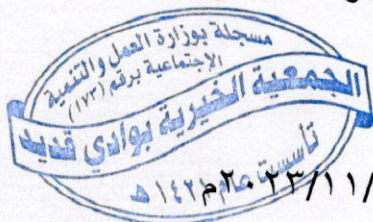 مسجلة بوزارة العمل والتنمية
الإجتماعية برقم (١٧٣)
الجمعية الخيرية بوادي قديد
تأسست عام ١٤٢١هـ
٢٠٢٣/١١/